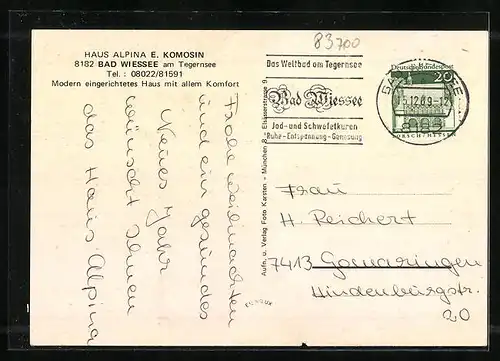 HAUS ALPINA E. KOMOSIN
8182 BAD WIESSEE am Tegernsee
Tel.: 08022/81591
Modern eingerichtetes Haus mit allem Komfort
Frohe Weihnachten
und ein gesundes
Neues Jahr
wünscht Ihnen
das Haus Alpina
Aufn. u. Verlag Foto Karsten - München 8 - Elsässerstrasse 9
83700
Das Weltbad am Tegernsee
Bad Wiessee
Jod- und Schwefelkuren
Ruhe - Entspannung - Genesung
Deutsche Bundespost
20
LORSCH/HESSEN
Frau
H. Reichert
7413 Gomaringen
Hindenburgstr.
20